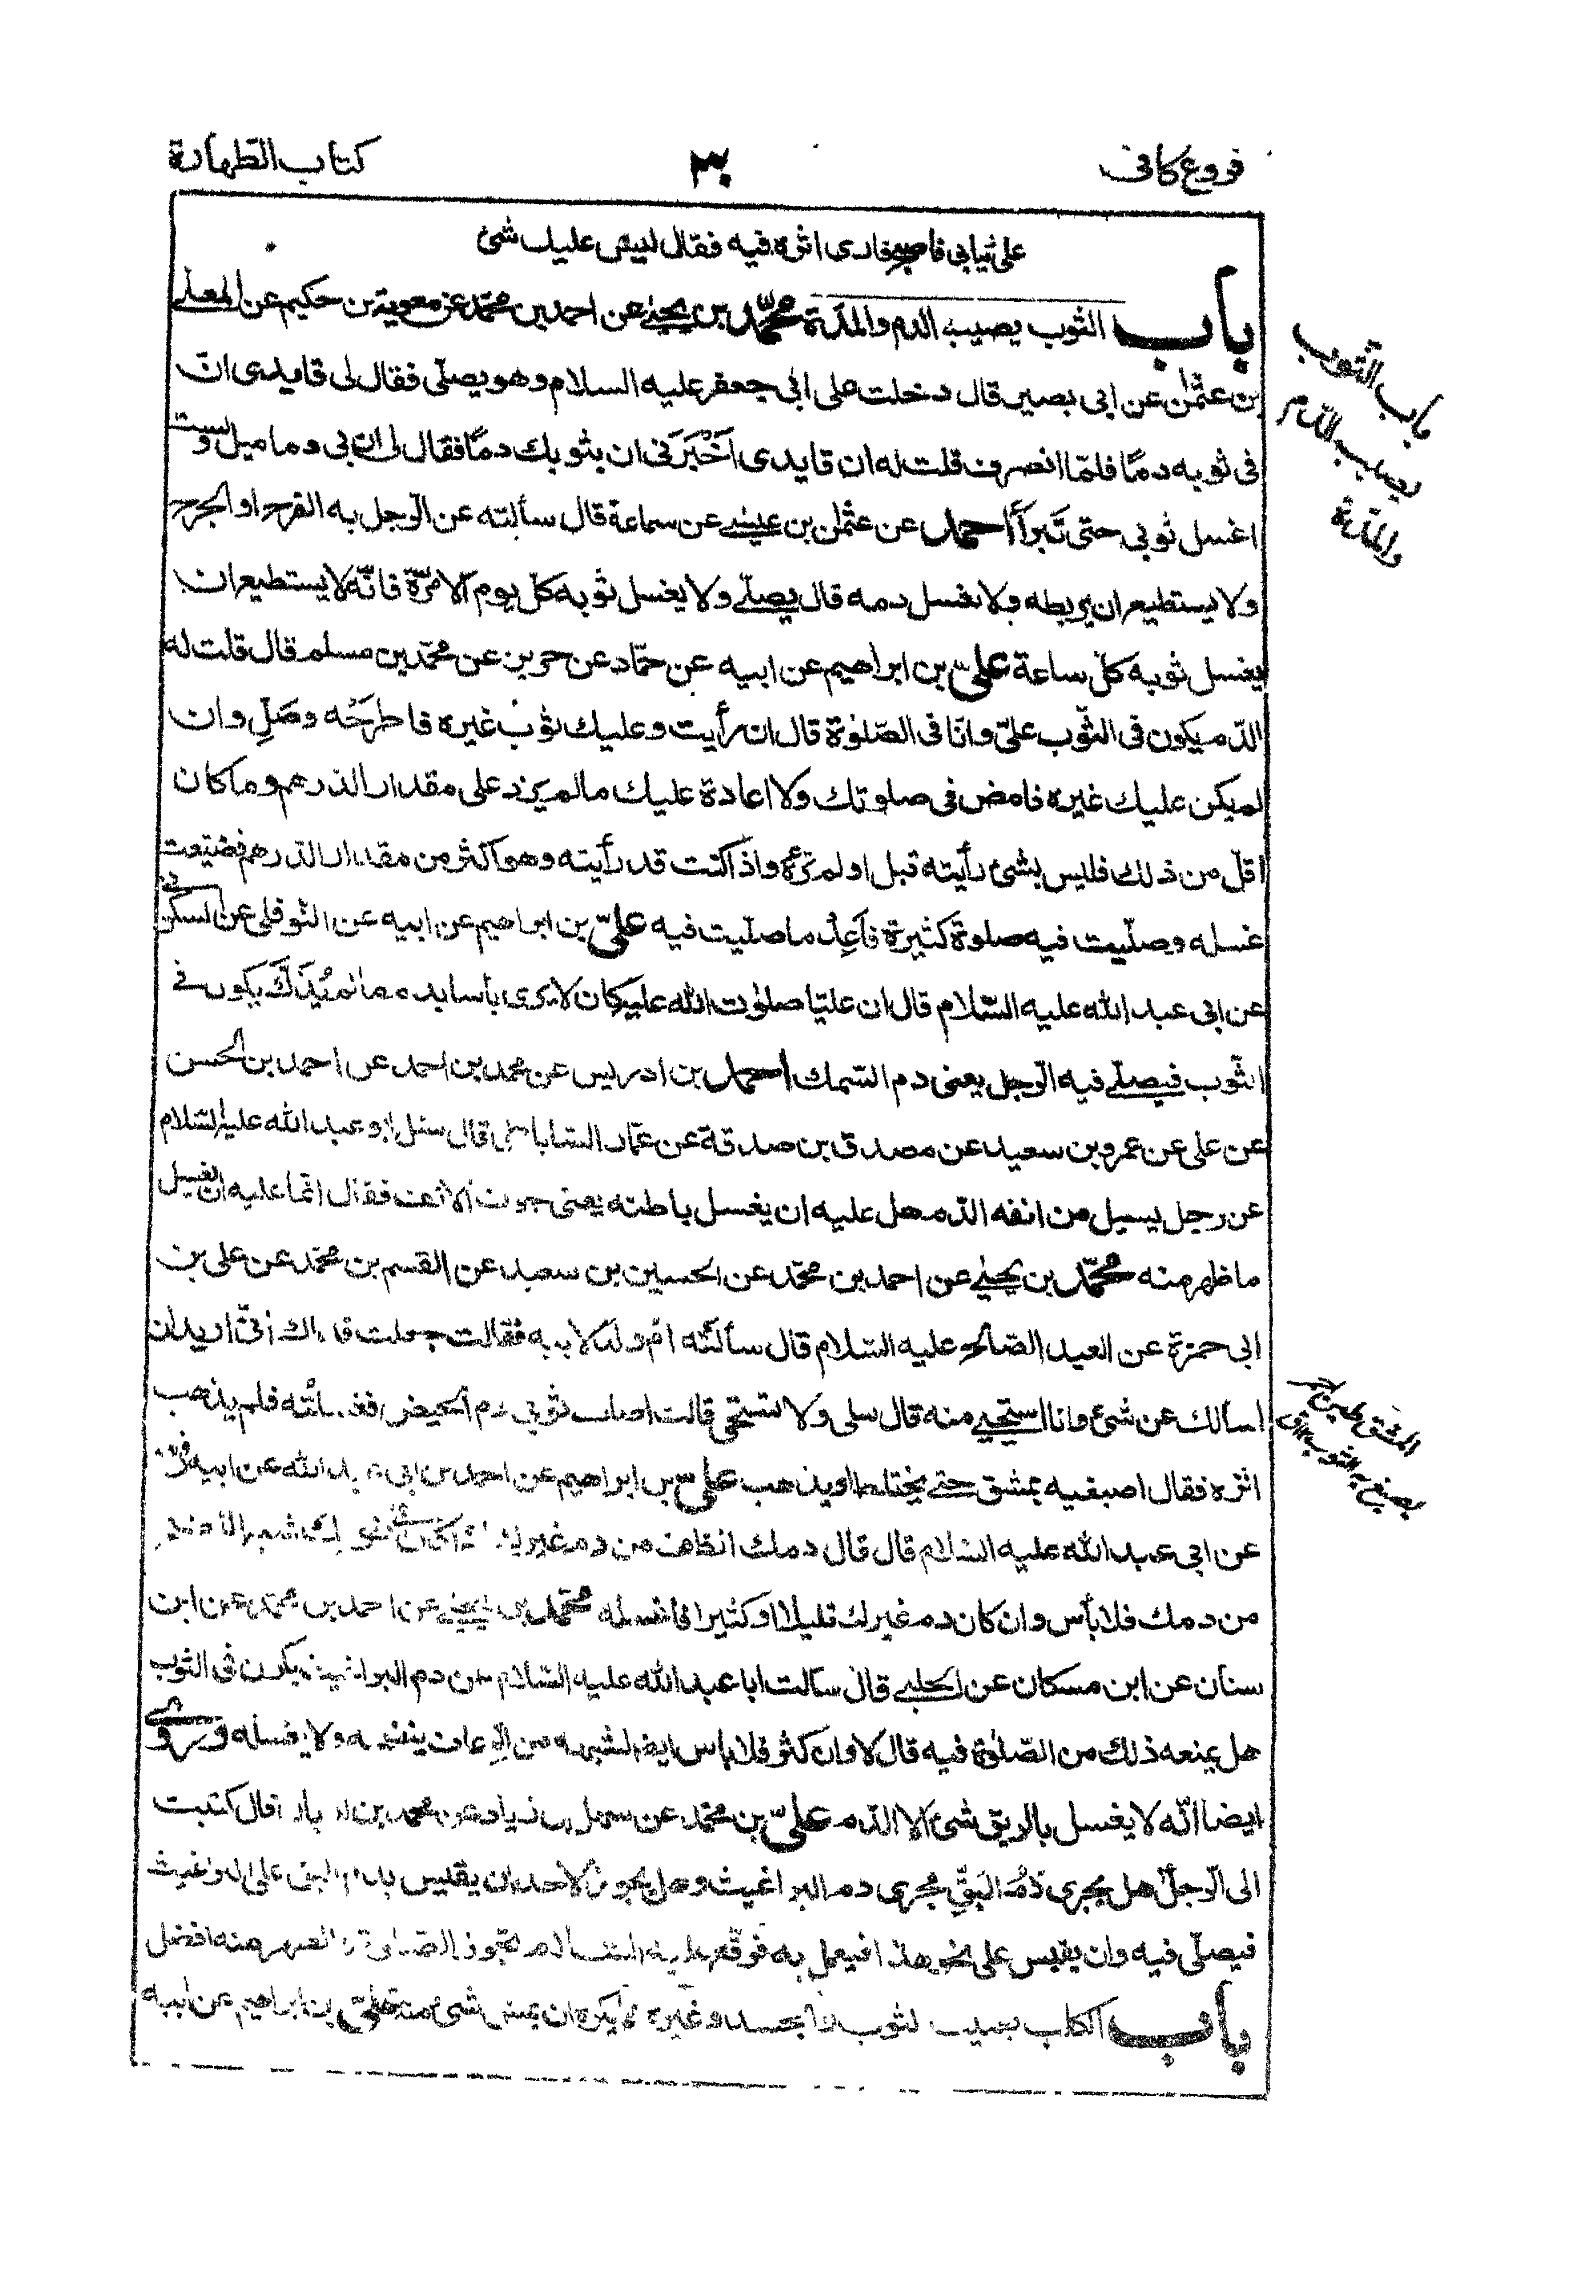 فروع كافى
٣٠
كتاب الطهارة
على ثيابى فاصبح فارى اثره فيه فقال ليس عليك شئ
باب الثوب يصيبه الدم والمدّة محمّد بن يحيى عن احمد بن محمّد عن معوية بن حكيم عن المعلى
بن عثمٰن عن ابى بصير قال دخلت على ابى جعفر عليه السلام وهو يصلّى فقال لى قايدى انّ
فى ثوبه دمًا فلمّا انصرف قلت له ان قايدى اَخْبَرَنى ان بثوبك دمًا فقال لى ان بى دماميل ولست
اغسل ثوبى حتى تَبرَأَ احمد عن عثمٰن بن عيسى عن سماعة قال سألته عن الرّجل به القرح او الجرح
ولا يستطيع ان يربطه ولا يغسل دمه قال يصلّى ولا يغسل ثوبه كلّ يوم الّا مرّة فانّه لا يستطيع ان
يغسل ثوبه كلّ ساعة علىّ بن ابراهيم عن ابيه عن حمّاد عن حريز عن محمّد بن مسلم قال قلت له
الدّم يكون فى الثّوب علىّ وانا فى الصّلوٰة قال ان رأيت وعليك ثوب غيره فاطرحْه وصَلِّ وان
لم يكن عليك غيره فامض فى صلوتك ولا اعادة عليك ما لم يزد على مقدار الدّرهم وما كان
اقلّ من ذلك فليس بشئ رأيته قبل او لم تره واذا كنت قد رأيته وهو اكثر من مقدار الدّرهم فضيّعت
غسله وصلّيت فيه صلوة كثيرة فاَعِدْ ما صلّيت فيه علىّ بن ابراهيم عن ابيه عن النّوفلى عن السكونى
عن ابى عبد الله عليه السّلام قال ان عليّا صلوٰت الله عليه كان لا يرى بأسا بدم ما لم يُذَكَّ يكون فى
الثّوب فيصلّى فيه الرّجل يعنى دم السّمك احمد بن ادريس عن محمد بن احمد عن احمد بن الحسن
عن على عن عمرو بن سعيد عن مصدق بن صدقة عن عمّار الساباطى قال سئل ابو عبد الله عليه السّلام
عن رجل يسيل من انفه الدّم هل عليه ان يغسل باطنه يعنى جوف الانف فقال انّما عليه ان يغسل
ما ظهر منه محمّد بن يحيى عن احمد بن محمّد عن الحسين بن سعيد عن القسم بن محمّد عن على بن
ابى حمزة عن العبد الصّالح عليه السّلام قال سألتْه امّ ولد لابيه فقالت جعلت فداك انّى اريد ان
اسألك عن شئ وانا استحيى منه قال سلى ولا تستحى قالت اصاب ثوبى دم الحيض فغسلته فلم يذهب
اثره فقال اصبغيه بمشق حتى يختلط او يذهب علىّ بن ابراهيم عن احمد بن ابى عبد الله عن ابيه
عن ابى عبد الله عليه السّلام قال قال دمك انظف من دم غيرك اذا كان فى ثوبك شبه النّضح
من دمك فلا بأس وان كان دم غيرك قليلا او كثيرا فاغسله محمّد بن يحيى عن احمد بن محمّد عن ابن
سنان عن ابن مسكان عن الحلبى قال سألت ابا عبد الله عليه السّلام عن دم البراغيث يكون فى الثوب
هل يمنعه ذلك من الصّلوٰة فيه قال لا وان كثر فلا باس ايضا بشبهه من الرّعاف ينضحه ولا يغسله وروى
ايضا انّه لا يغسل بالريق شئ الّا الدّم علىّ بن محمّد عن سهل بن زياد عن محمد بن الريان قال كتبت
الى الرّجل هل يجرى دَمُ البَقِّ مجرى دم البراغيث وهل يجوز لاحد ان يقيس بدم البق على البراغيث
فيصلّى فيه وان يقيس على نحو هذا فيعمل به فوقّع عليه السّلام تجوز الصّلوٰة والطهر منه افضل
باب الكلب يصيب الثوب والجسد وغيره ممّا يكره ان يمسّ شئ منه علىّ بن ابراهيم عن ابيه
باب الثوب
يصيبه الدّم
والمدّة
المشق طين
يصبغ به الثوب